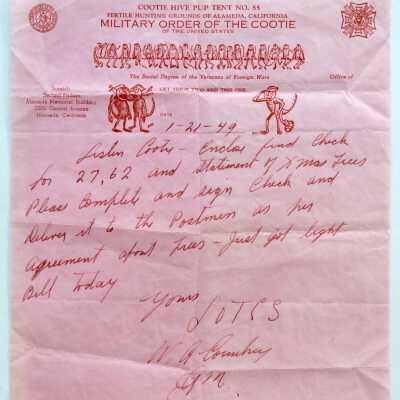 COOTIE HIVE PUP TENT NO. 55
FERTILE HUNTING GROUNDS OF ALAMEDA, CALIFORNIA
MILITARY ORDER OF THE COOTIE
OF THE UNITED STATES
The Social Degree of the Veterans of Foreign Wars
Office of
Second Fridays
Alameda Memorial Building
Central Avenue
Alameda, California
DATE 1-21-49
Listen Cootie - Enclose find Check
for 27,62 and Statement of Xmas Trees
Please Complete and sign Check and
Deliver it to the Postmen as per
Agreement about Trees - Just got light
Bill Today
Yours
LOTCS
W A